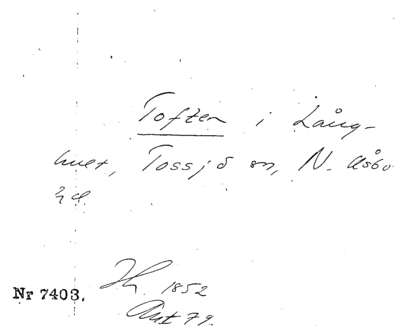 Toften i Lång-
hult, Tossjö sn, N. Åsbo
hd.
Nr 7403. Hh. 1852
Ant 79.